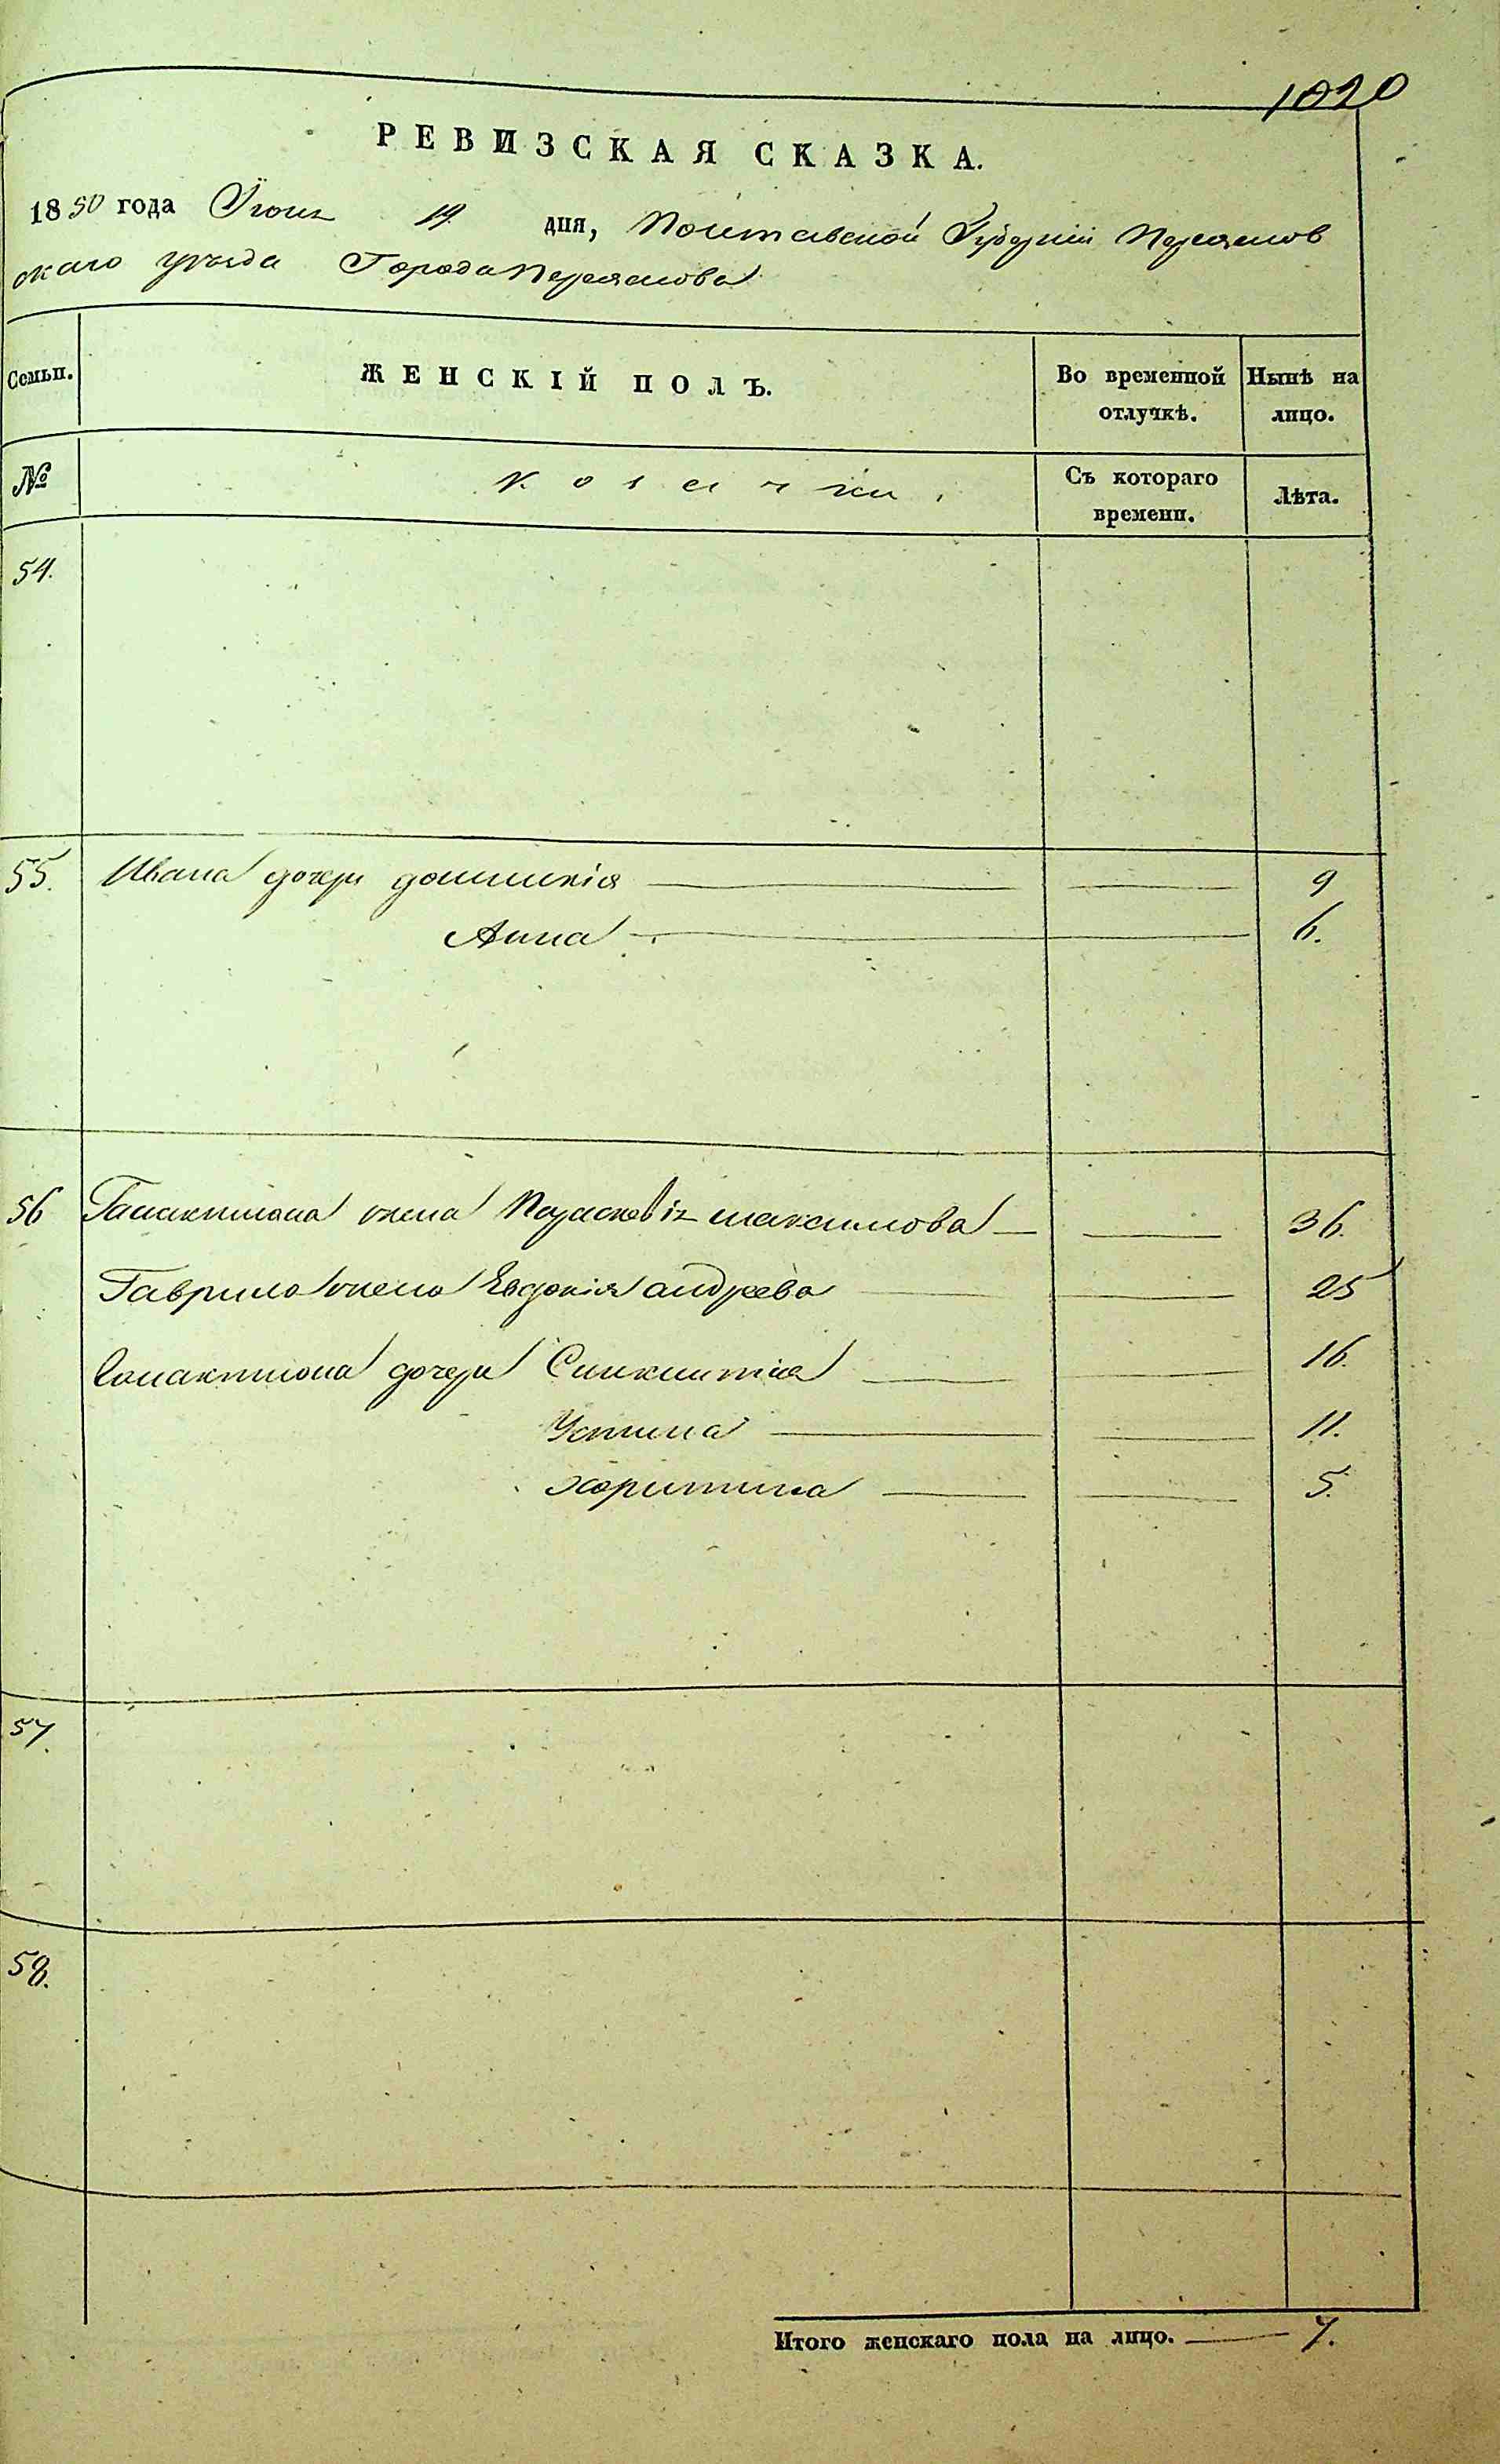 1020
РЕВИЗСКАЯ СКАЗКА.
1850 года Іюня 19. дня, Полтавской Губерніи Переяслов
скаго уѣзда Города Переяслова
Семьи.
ЖЕНСКІЙ ПОЛЪ.
Во временной отлучкѣ.
Ныпѣ на лицо.
№
Козачки.
Съ котораго времени.
Лѣта.
54.
55. Ивана дочери домникія 9
Анна 6.
56 Галактиона жена Парасковія максимова 36.
Гаврила жена Евдокія андреева 25
Галактиона дочери Синклитія 16.
Устина 11.
харитина 5.
57.
58.
Итого женскаго пола на лицо. 7.